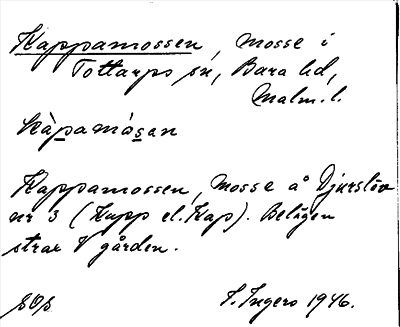 Kappamossen, mosse i
Tottarps sn, Bara hd,
Malm. l.
kàpamósan
Kappamossen, Mosse å Djurslöv
nr 3 (Kapp el. Kap). Belägen
strax V gården.
I. Ingers 1946.